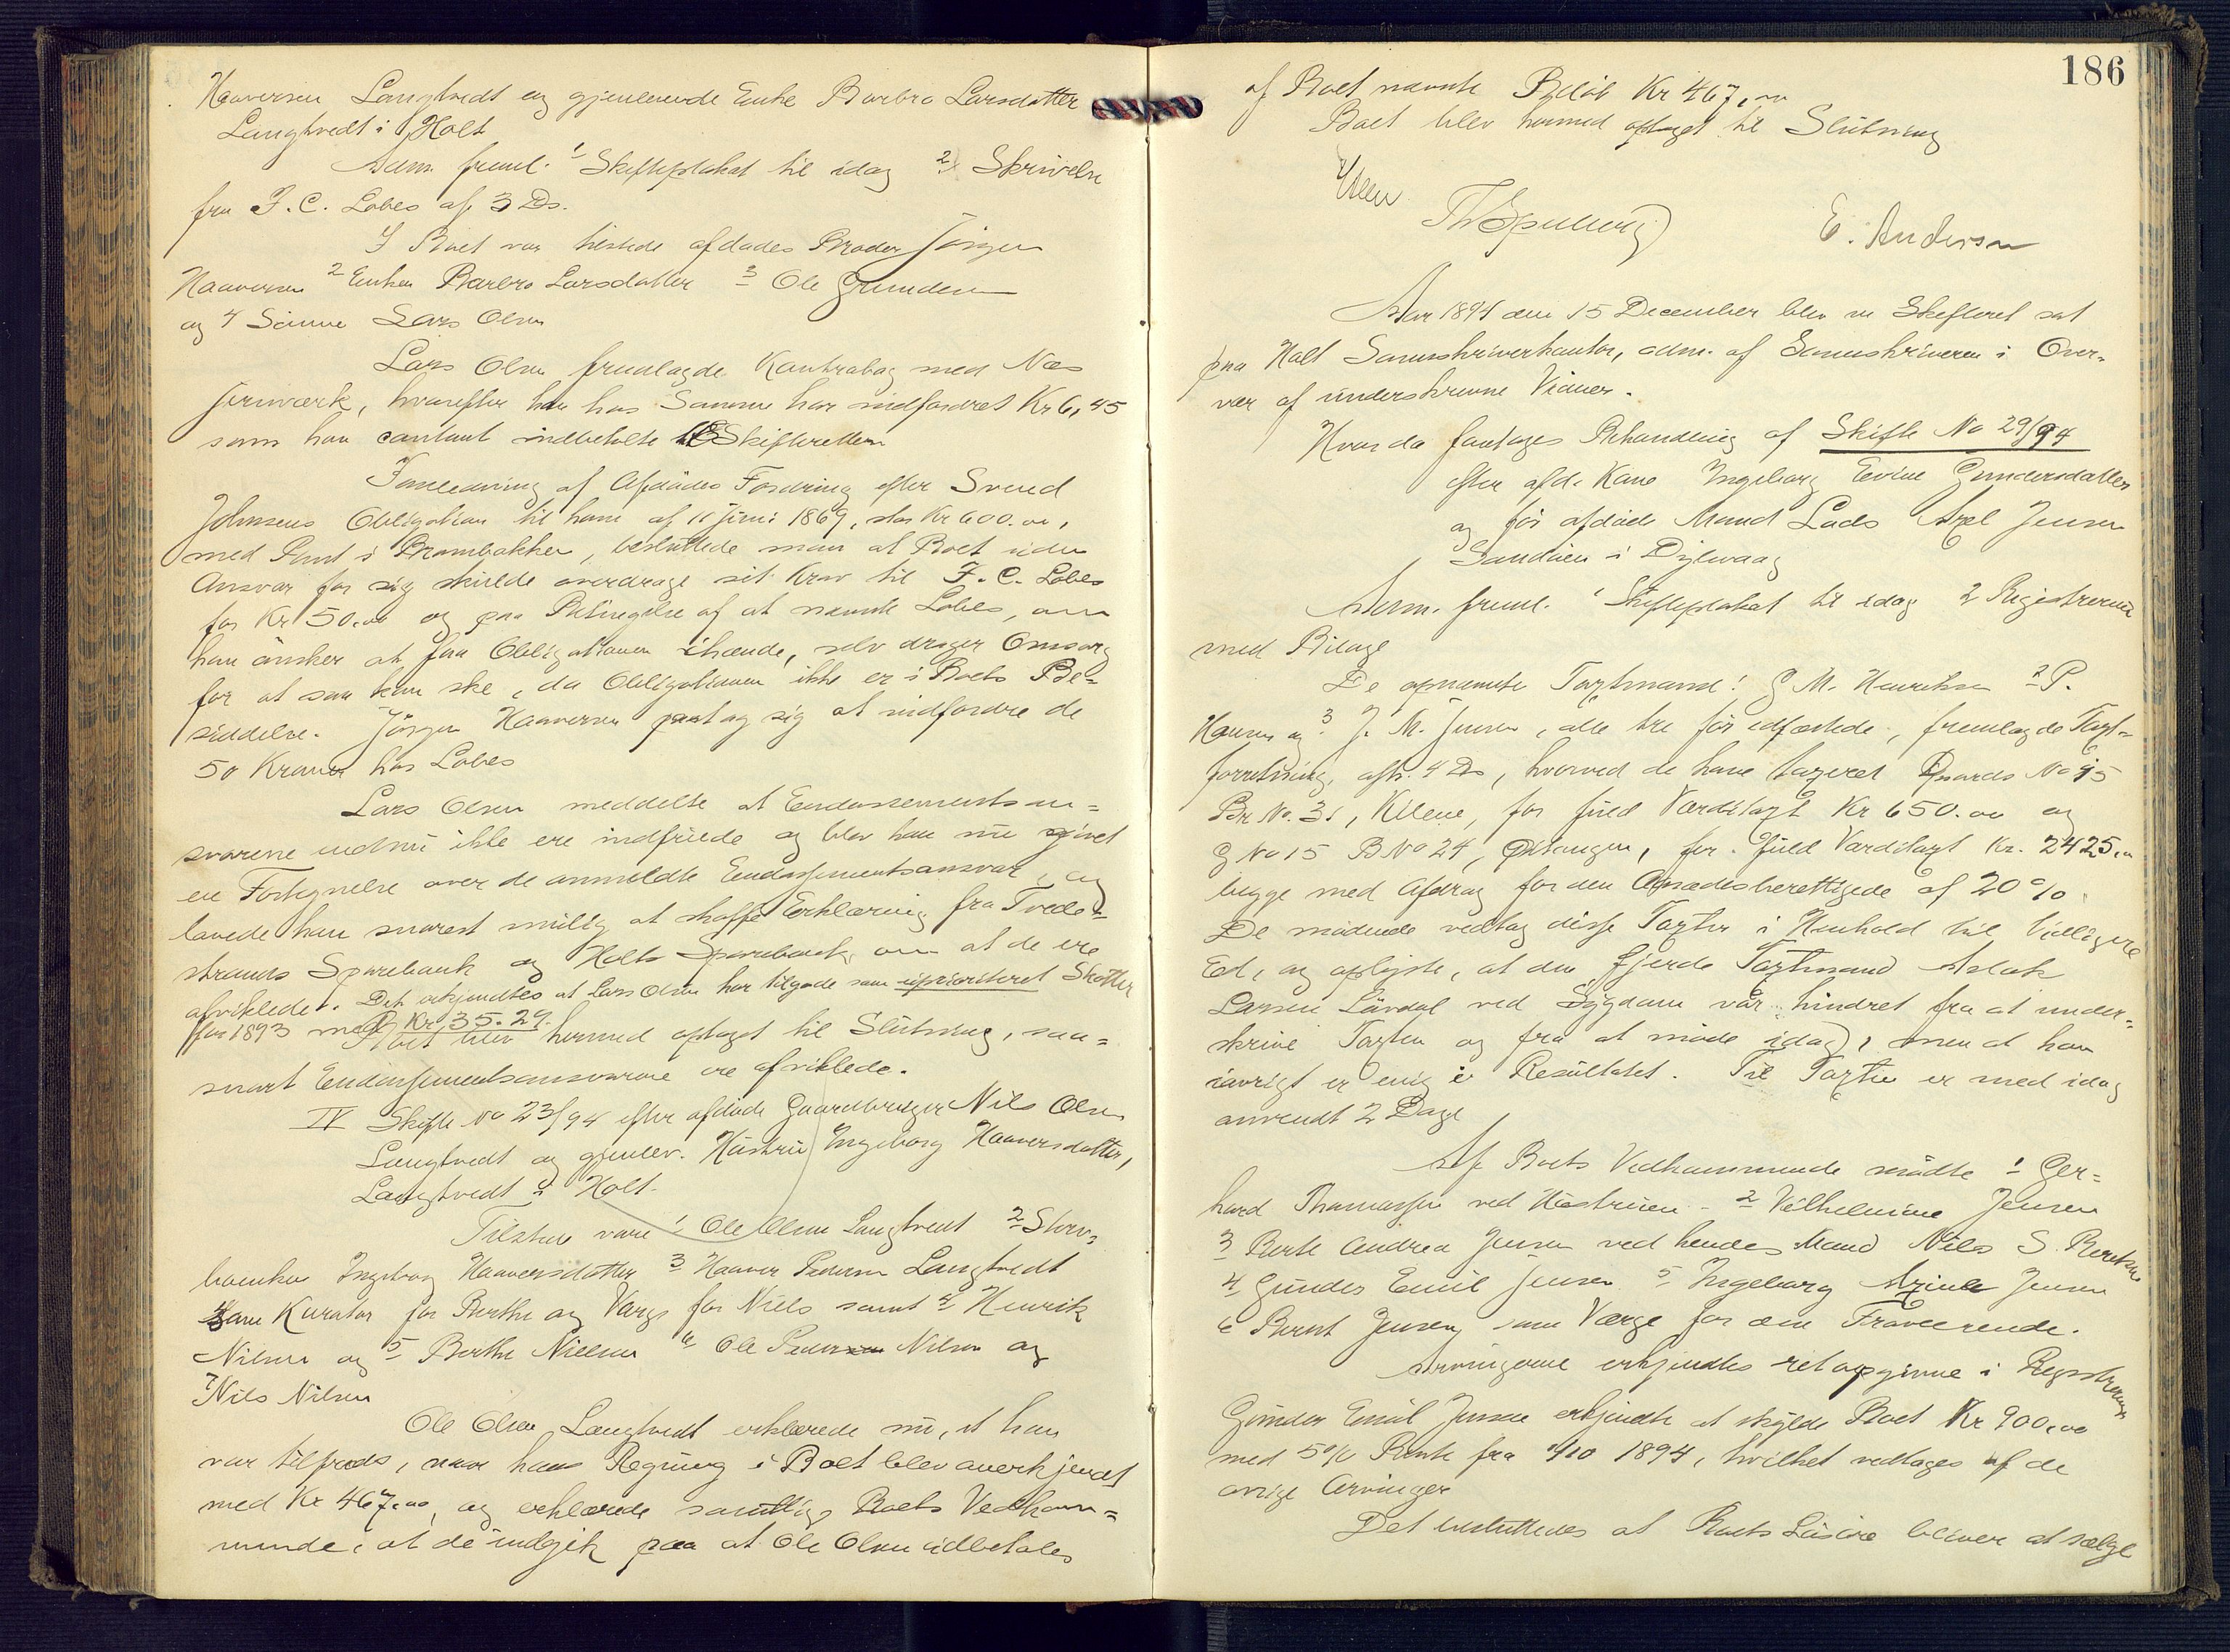 Haaversen Langtvedt og gjenlevende Enke Barbro Larsdatter
Langtvedt i Holt
Adm. freml. 1 Skifteplakat til idag 2, Skrivelse
fra F. C. Lobes af 3 Ds.
I Boet var tilstede afdødes Broder Jörgen
Haaversen 2 Enken Barbro Larsdatter 3 Ole Gundersen
og 4 Sönnen Lars Olsen
Lars Olsen fremlagde Kontrabog med Næs
Jernværk, hvorefter han hos Samme har indfordret Kr 6,45
som han contant indbetalte til Skifteretten
I Anledning af Afdødes Fordring efter Svend
Johnsens Obligation til ham af 11 Juni 1869, stor Kr 600.00,
med Pant i Brombakken, besluttede man at Boet uden
Ansvar for sig skulde overdrage sit Krav til F. C. Lobes
for Kr 50.00 og paa Betingelse af at nævnte Lobes, om
han önsker at faa Obligationen ihænde, selv drager Omsorg
for at saa kan ske, da Obligationen ikke er i Boets Be-
siddelse. Jörgen Haaversen paatog sig at indfordre de
50 Kroner hos Lobes
Lars Olsen meddelte at Endossementsan=
svarene endnu ikke ere indfriede og blev han nu givet
en Fortegnelse over de anmeldte Endossementsansvar, og
lovede han snarest mulig at skaffe Erklæring fra Tvede-
strands Sparebank og Holts Sparebank om at de ere
afviklede. Det erkjendtes at Lars Olsen har tilgode som uprioriteret Skatter
for 1893 med Kr 35.29.
Boet blev hermed optaget til Slutning, saa=
snart Endossementsansvarene ere afviklede.
IV Skifte No 23/94 efter afdøde Gaardbruger Nils Olsen
Langtvedt og gjenlev. Hustru Ingeborg Haaversdatter,
Langtvedt i Holt.
Tilstede vare 1 Ole Olsen Langtvedt 2 Sterv=
boenken Ingeborg Haaversdatter 3 Haaver Pedersen Langtvedt
som Kurator for Berthe og Værge for Niels samt 4 Henrik
Nilsen og 5 Berthe Nielsen 6 Ole Pedersen Nilsen og
7 Nils Nilsen
Ole Olsen Langtvedt erklærede nu, at han
var tilfreds, naar hans Regning i Boet blev anerkjendt
med Kr 467.00, og erklærede samtlige Boets Vedkom=
mende, at de indgik paa at Ole Olsen udbetales
186
af Boet nævnte Beløb Kr 467,00
Boet blev hermed optaget til Slutning
E. Andersen
Aar 1894 den 15 December blev en Skifteret sat
paa Holt Sorenskriverkontor, adm. af Sorenskriveren i Over-
vær af underskrevne Vidner.
Hvor da foretoges Behandling af Skifte No 29/94
efter afd. Kone Ingeborg Gundersdatter
og för afdöde Mand Lods Axel Jensen
Sandöen i Dybvaag
Adm. freml. 1 Skifteplakat til idag 2 Registrering
med Bilage
De opnævnte Taxtmænd: G. M. Henriksen 2 P.
Hansen og 3 J. M. Jensen, alle tre för edfæstede, fremlagde Taxt-
forretning, afh. 4 Ds, hvorved de have taxeret Gaards No 15
Br No. 31, Kilene, for fuld Værditaxt Kr 650.00 og
G No 15 B No 24, for fuld Værditaxt Kr. 2425,00
begge med Afdrag for den Aasædesberettigede af 20%.
De mödende vedtog disse Taxter i Henhold til tidligere
Ed, og oplyste, at den fjerde Taxtmand Aslak
Larsen Lövdal ved Sygdom var hindret fra at under=
skrive Taxten og fra at möde idag, men at han
iövrigt er enig i Resultatet. Til Taxten er med idag
anvendt 2 Dage
Af Boets Vedkommende mödte 1 Ger-
hard Thomassen ved Hustruen - 2 Vilhelmine Jensen
3 Berte Andrea Jensen ved hendes Mand Nils S. Berntsen
4 Gunder Emil Jensen 5 Ingeborg Axine Jensen
6 Bernt Jensen som Værge for den Fraværende.
Arvingerne erkjendtes ret opgivne i Registreringen
Gunder Emil Jensen erkjendte at skylde Boet Kr 900,00
med 5% Rente fra 1/10 1894, hvilket vedtages af de
övrige Arvinger
Det besluttedes at Boets Lösöre bliver at sælge